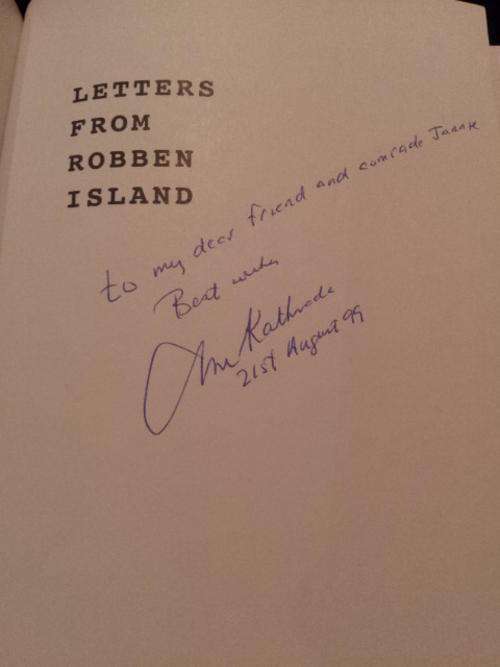 LETTERS
FROM
ROBBEN
ISLAND
to my dear friend and comrade
Best wishes
Kathrada
21st August 99